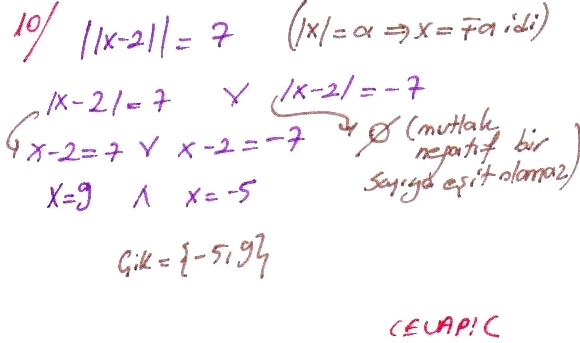 10/ ||x-2|| = 7 (|x| = a ⇒ x = ∓a idi)
|x-2| = 7 ∨ |x-2| = -7
x-2 = 7 ∨ x-2 = -7 ∅ (mutlak negatif bir sayıya eşit olamaz)
x=9 ∧ x=-5
Çik = {-5, 9}
CEVAP: C